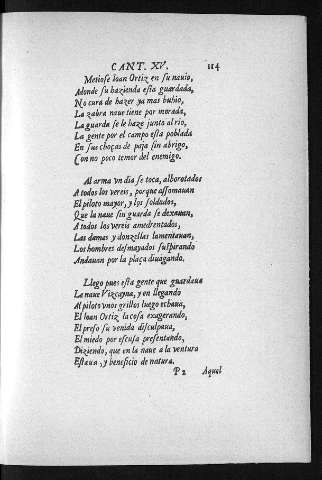 CANT. XV. 114
Metiose Ioan Ortiz en su nauio,
Adonde su hazienda esta guardada,
No cura de hazer ya mas buhio,
La zabra naue tiene por morada,
La guarda se le haze junto al rio,
La gente por el campo esta poblada
En sus choças de paja sin abrigo,
Con no poco temor del enemigo.
Al arma vn dia se toca, alborotados
A todos los vereis, porque assomauan
El piloto mayor, y los soldados,
Que la naue sin guarda se dexauan,
A todos los vereis amedrentados,
Las damas y donzellas lamentauan,
Los hombres desmayados suspirando
Andauan por la plaça diuagando.
Llego pues esta gente que guardaua
La naue Vizcayna, y en llegando
Al piloto vnos grillos luego echaua,
El Ioan Ortiz la cosa exagerando,
El preso su venida disculpaua,
El miedo por escusa presentando,
Diziendo, que en la naue a la ventura
Estaua, y beneficio de natura.
P 2 Aquel